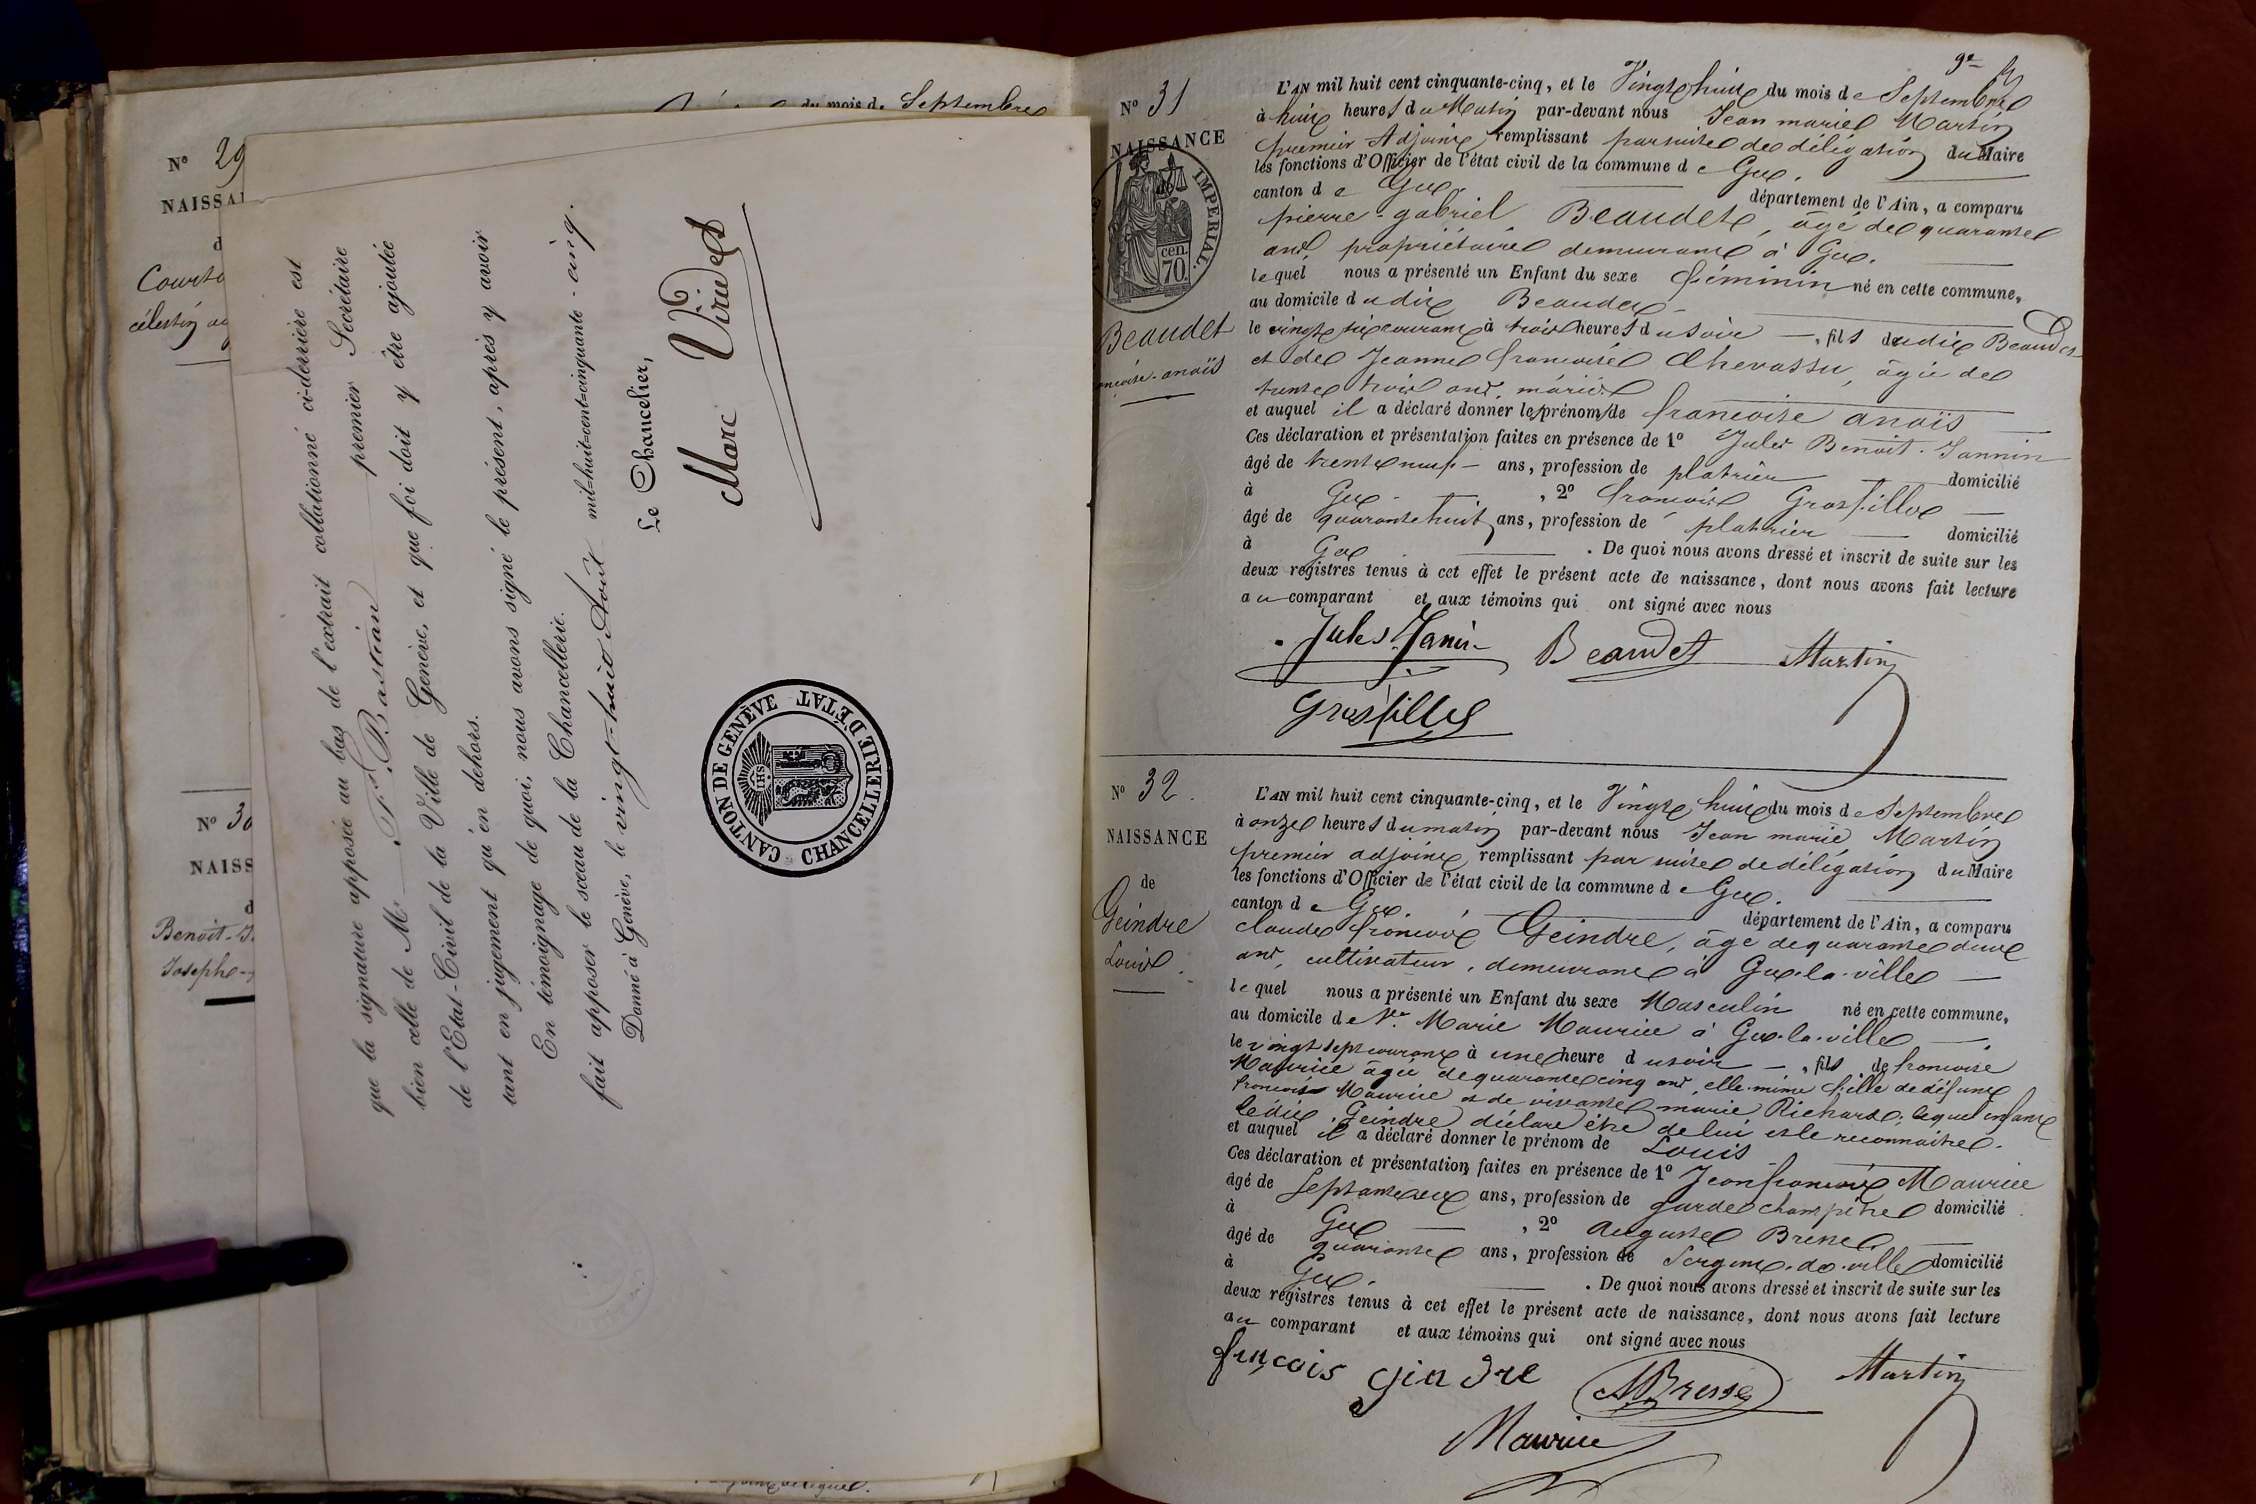 du mois de Septembre
N° 29
NAISSA
d
Courto
célestin au
N° 30
NAISS
d
Benoit-J
Joseph-
que la signature apposée au bas de l'extrait collationné ci-derrière est
bien celle de Mr F. Bastian premier Secrétaire
de l'Etat-Civil de la Ville de Genève, et que foi doit y être ajoutée
tant en jugement qu'en dehors.
En témoignage de quoi, nous avons signé le présent, après y avoir
fait apposer le sceau de la Chancellerie.
Donné à Genève, le vingt-huit Août mil-huit-cent-cinquante-cinq.
Le Chancelier,
Marc Viridet
CANTON DE GENÈVE
CHANCELLERIE D'ÉTAT
IHS
9e
N° 31
NAISSANCE
de
IMPERIAL.
70 cen.
Beaudet
ançoise-anaïs
L'AN mil huit cent cinquante-cinq, et le Vingt huit du mois de Septembre
à huit heures du Matin par-devant nous Jean marie Martin
premier Adjoint remplissant par suite de délégation du Maire
les fonctions d'Officier de l'état civil de la commune de Gex.
canton de Gex. département de l'Ain, a comparu
pierre-gabriel Beaudet, âgé de quarante
ans, propriétaire demeurant à Gex.
lequel nous a présenté un Enfant du sexe féminin né en cette commune,
au domicile dudit Beaudet
le vingt six courant à trois heures du soir, fils dudit Beaudet
et de Jeanne françoise Chevassu, âgée de
trente trois ans, mariés
et auquel il a déclaré donner les prénoms de francoise anaïs
Ces déclaration et présentation faites en présence de 1° Jules Benoit-Jannin
âgé de trente neuf ans, profession de platrier domicilié
à Gex, 2° françois Grosfillex
âgé de quarante huit ans, profession de platrier domicilié
à Gex. De quoi nous avons dressé et inscrit de suite sur les
deux registres tenus à cet effet le présent acte de naissance, dont nous avons fait lecture
au comparant et aux témoins qui ont signé avec nous
Jules Janin Beaudet Martin
Grosfillex
N° 32.
NAISSANCE
de
Geindre
Louis.
L'AN mil huit cent cinquante-cinq, et le Vingt huit du mois de Septembre
à onze heures du matin par-devant nous Jean marie Martin
premier adjoint remplissant par suite de délégation du Maire
les fonctions d'Officier de l'état civil de la commune de Gex.
canton de Gex. département de l'Ain, a comparu
claude françois Geindre, âgé de quarante deux
ans, cultivateur, demeurant à Gex-la-ville
lequel nous a présenté un Enfant du sexe Masculin né en cette commune,
au domicile de Ve Marie Maurice à Gex-la-ville
le vingt sept courant à une heure du soir, fils de francoise
Maurice âgée de quarante cinq ans, elle-même fille de défunt
francois Maurice et de vivante marie Richard; lequel enfant
ledit Geindre déclare être de lui et le reconnaitre.
et auquel il a déclaré donner le prénom de Louis
Ces déclaration et présentation faites en présence de 1° Jean françois Maurice
âgé de Septante ans, profession de garde champêtre domicilié
à Gex, 2° Auguste Bresse
âgé de quarante ans, profession de Sergent-de-ville domicilié
à Gex. De quoi nous avons dressé et inscrit de suite sur les
deux registres tenus à cet effet le présent acte de naissance, dont nous avons fait lecture
au comparant et aux témoins qui ont signé avec nous
françois gindre ABresse Martin
Maurice